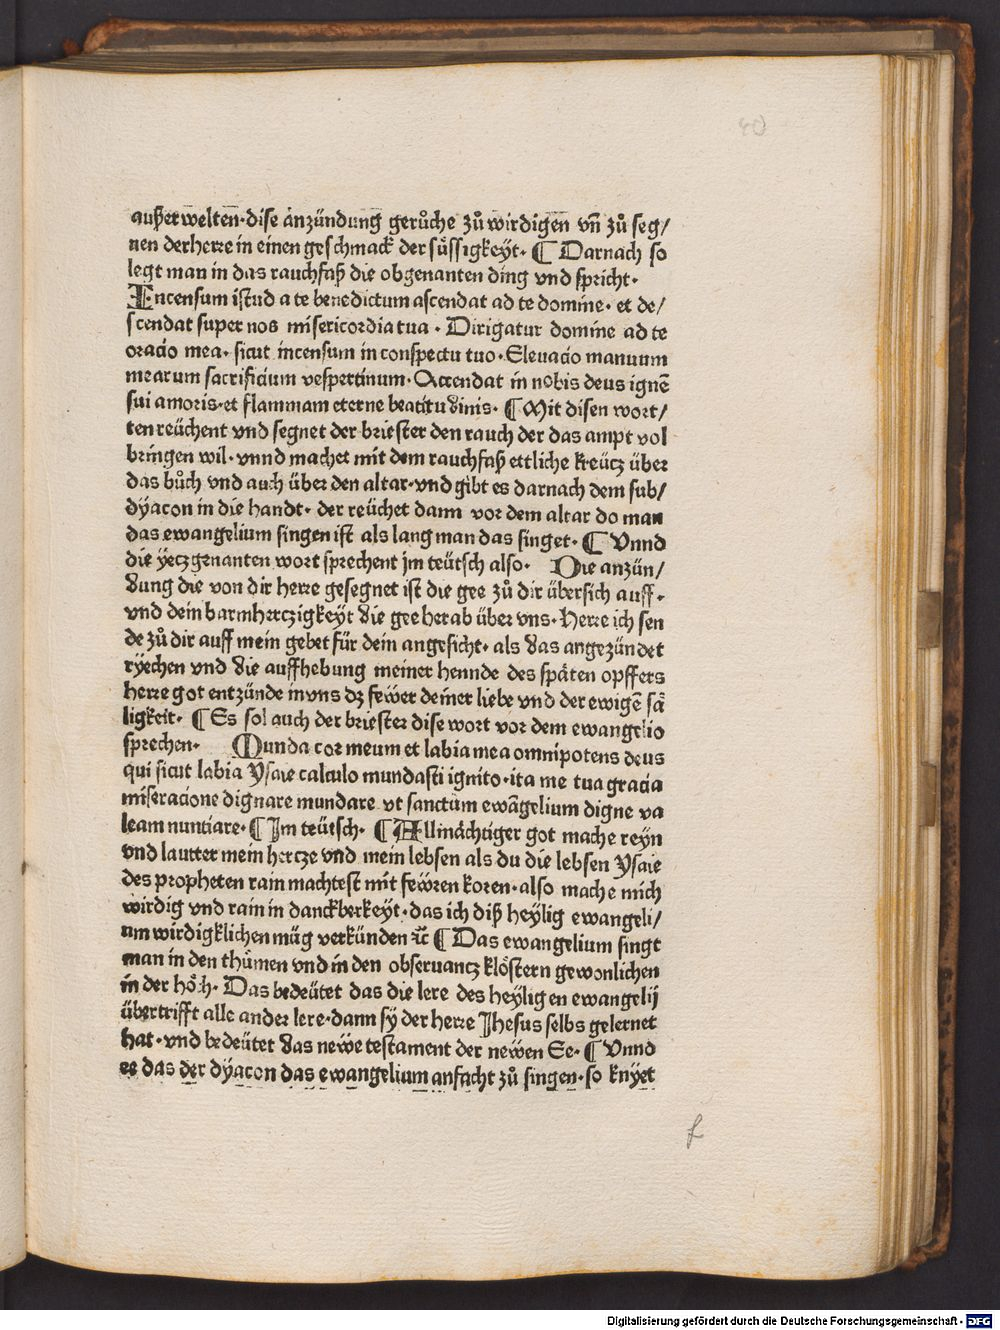 40
außerwelten·dise anzündung gerůche zů wirdigen vn̄ zů seg/
nen der herre in einen geschmack der süssigkeyt· ¶ Darnach so
legt man in das rauchfaß die obgenanten ding vnd spricht·
Incensum istud a te benedictum ascendat ad te domine· et de/
scendat super nos misericordia tua · Dirigatur domine ad te
oracio mea· sicut incensum in conspectu tuo·Eleuacio manuum
mearum sacrificium vespertinum·Accendat in nobis deus ignē
sui amoris·et flammam eterne beatitudinis· ¶ Mit disen wort/
ten reüchent vnd segnet der briester den rauch der das ampt vol
bringen wil·vnnd machet mit dem rauchfaß ettliche kreücz über
das bůch vnd auch über den altar·vnd gibt es darnach dem sub/
dyacon in die handt· der reüchet dann vor dem altar do man
das ewangelium singen ist als lang man das singet· ¶ Vnnd
die yeczgenanten wort sprechent jm teütsch also· Die anzün/
dung die von dir herre gesegnet ist die gee zů dir übersich auff·
vnd dein barmherczigkeyt die gee herab über vns·Herre ich sen
de zů dir auff mein gebet für dein angesicht· als das angezündet
ryechen vnd die auffhebung meiner hennde des späten opffers
herre got entzünde in vns dz fewer deiner liebe vnd der ewigē sä
ligkeit· ¶ Es sol auch der briester dise wort vor dem ewangelio
sprechen· Munda cor meum et labia mea omnipotens deus
qui sicut labia Ysaie calculo mundasti ignito·ita me tua gracia
miseracione dignare mundare vt sanctum ewāgelium digne va
leam nuntiare·¶ Im teütsch· ¶ Allmächtiger got mache reyn
vnd lautter mein hercze vnd mein lebsen als du die lebsen Ysaie
des propheten rain machtest mit fewren koren·also mache mich
wirdig vnd rain in danckberkeyt·das ich diß heylig ewangeli/
um wirdigklichen müg verkünden ⁊c̄ ¶ Das ewangelium singt
man in den thůmen vnd in den obseruancz klöstern gewonlichen
in der höh· Das bedeütet das die lere des heyligen ewangelij
übertrifft alle ander lere·dann sy der herre Jhesus selbs gelernet
hat·vnd bedeütet das newe testament der newen Ee·¶ Vnnd
ee das der dyacon das ewangelium anfacht zů singen·so knyet
f
Digitalisierung gefördert durch die Deutsche Forschungsgemeinschaft - DFG